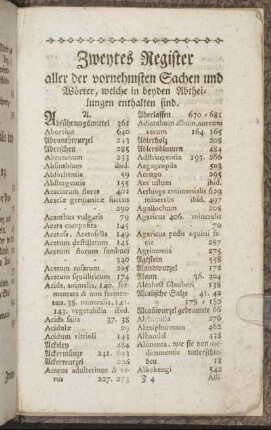 Zweytes Register
aller der vornehmsten Sachen und
Wörter, welche in beyden Abthei-
lungen enthalten sind.
A.
Abführungsmittel 361
Abortiva 640
Abranthwurzel 243
Abrischen 285
Absinthium ibid.
Absüchenta 59
Abstergentia 155
Acaciarum flores 402
Acaciæ germanicæ succus
290
Acanthus vulgaris 79
Acetosa, Acetosella 149
Acetum destillatum 145
Acetum florum sambuci
340
Acetum rosarum 205
Acetum squilliticum 174
Acida, animalia, 140. fer-
mentata & non fermen-
tata. 38. mineralia, 141.
143. vegetabilia ibid.
Acida salia 37. 38
Acidulæ 29
Acidum vitrioli 143
Ackeley 484
Ackermünze 241. 643
Ackerwurzel 226
Acorus adulterinus & ve-
rus 227. 273
Aderlassen 670 = 681
Adianthum album, aureum
verum 164. 165
Adlerholz 208
Adlersblumen 484
Adstringentia 193. 266
Aegagropila 503
Aerugo 295
Aes ustum ibid.
Aethiops antimonialis 629
mineralis ibid. 497
Agallochum 208
Agaricus 406. mineralis
70
Agaricus pedis equini fa-
cie 287
Agrimonia 275
Agtstein 558
Alandwurzel 172
Alaun 36. 304
Alcahest Glauberi 138
Alcalische Salze 41. 42
178 = 150
Alcannawurzel gebrannte 66
Alchimilla 276
Alexipharmaca 462
Alhandal 438
Alimenta, wie sie von me-
dicamentis unterschie-
den 18
Alkekengi 542
Z 4 Alli-